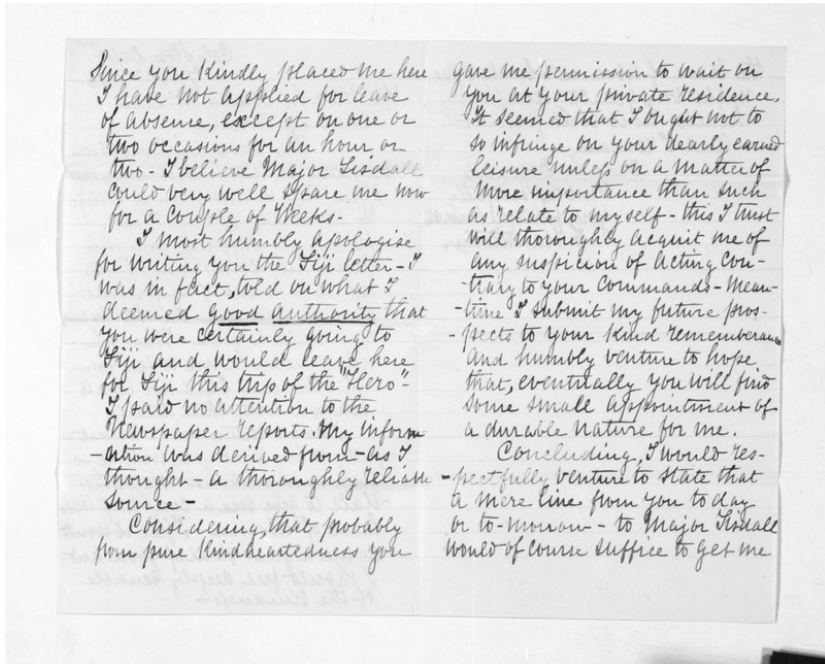 Since you kindly placed me here
I have not applied for leave
of absence, except on one or
two occasions for an hour or
two - I believe Major Tisdall
could very well spare me now
for a couple of weeks -
I most humbly apologise
for writing you the Fiji letter - I
was in fact, told on what I
deemed good authority that
you were certainly going to
Fiji and would leave here
for Fiji this trip of the "Hero" -
I paid no attention to the
Newspaper reports. My inform
-ation was derived from - as I
thought - a thoroughly reliable
source -
Considering, that probably
from pure kindheartedness you
gave me permission to wait on
you at your private residence,
It seemed that I ought not to
so infringe on your dearly earned
leisure unless on a matter of
more importance than such
as relate to myself - this I trust
will thoroughly acquit me of
any suspicion of acting con-
-trary to your commands - Mean-
-time I submit my future pros-
-pects to your kind rememberance
and humbly venture to hope
that, eventually you will find
some small appointment of
a durable nature for me.
Concluding, I would res-
-pectfully venture to state that
a mere line from you to day
or to-morrow - to Major Tisdall
would of course suffice to get me